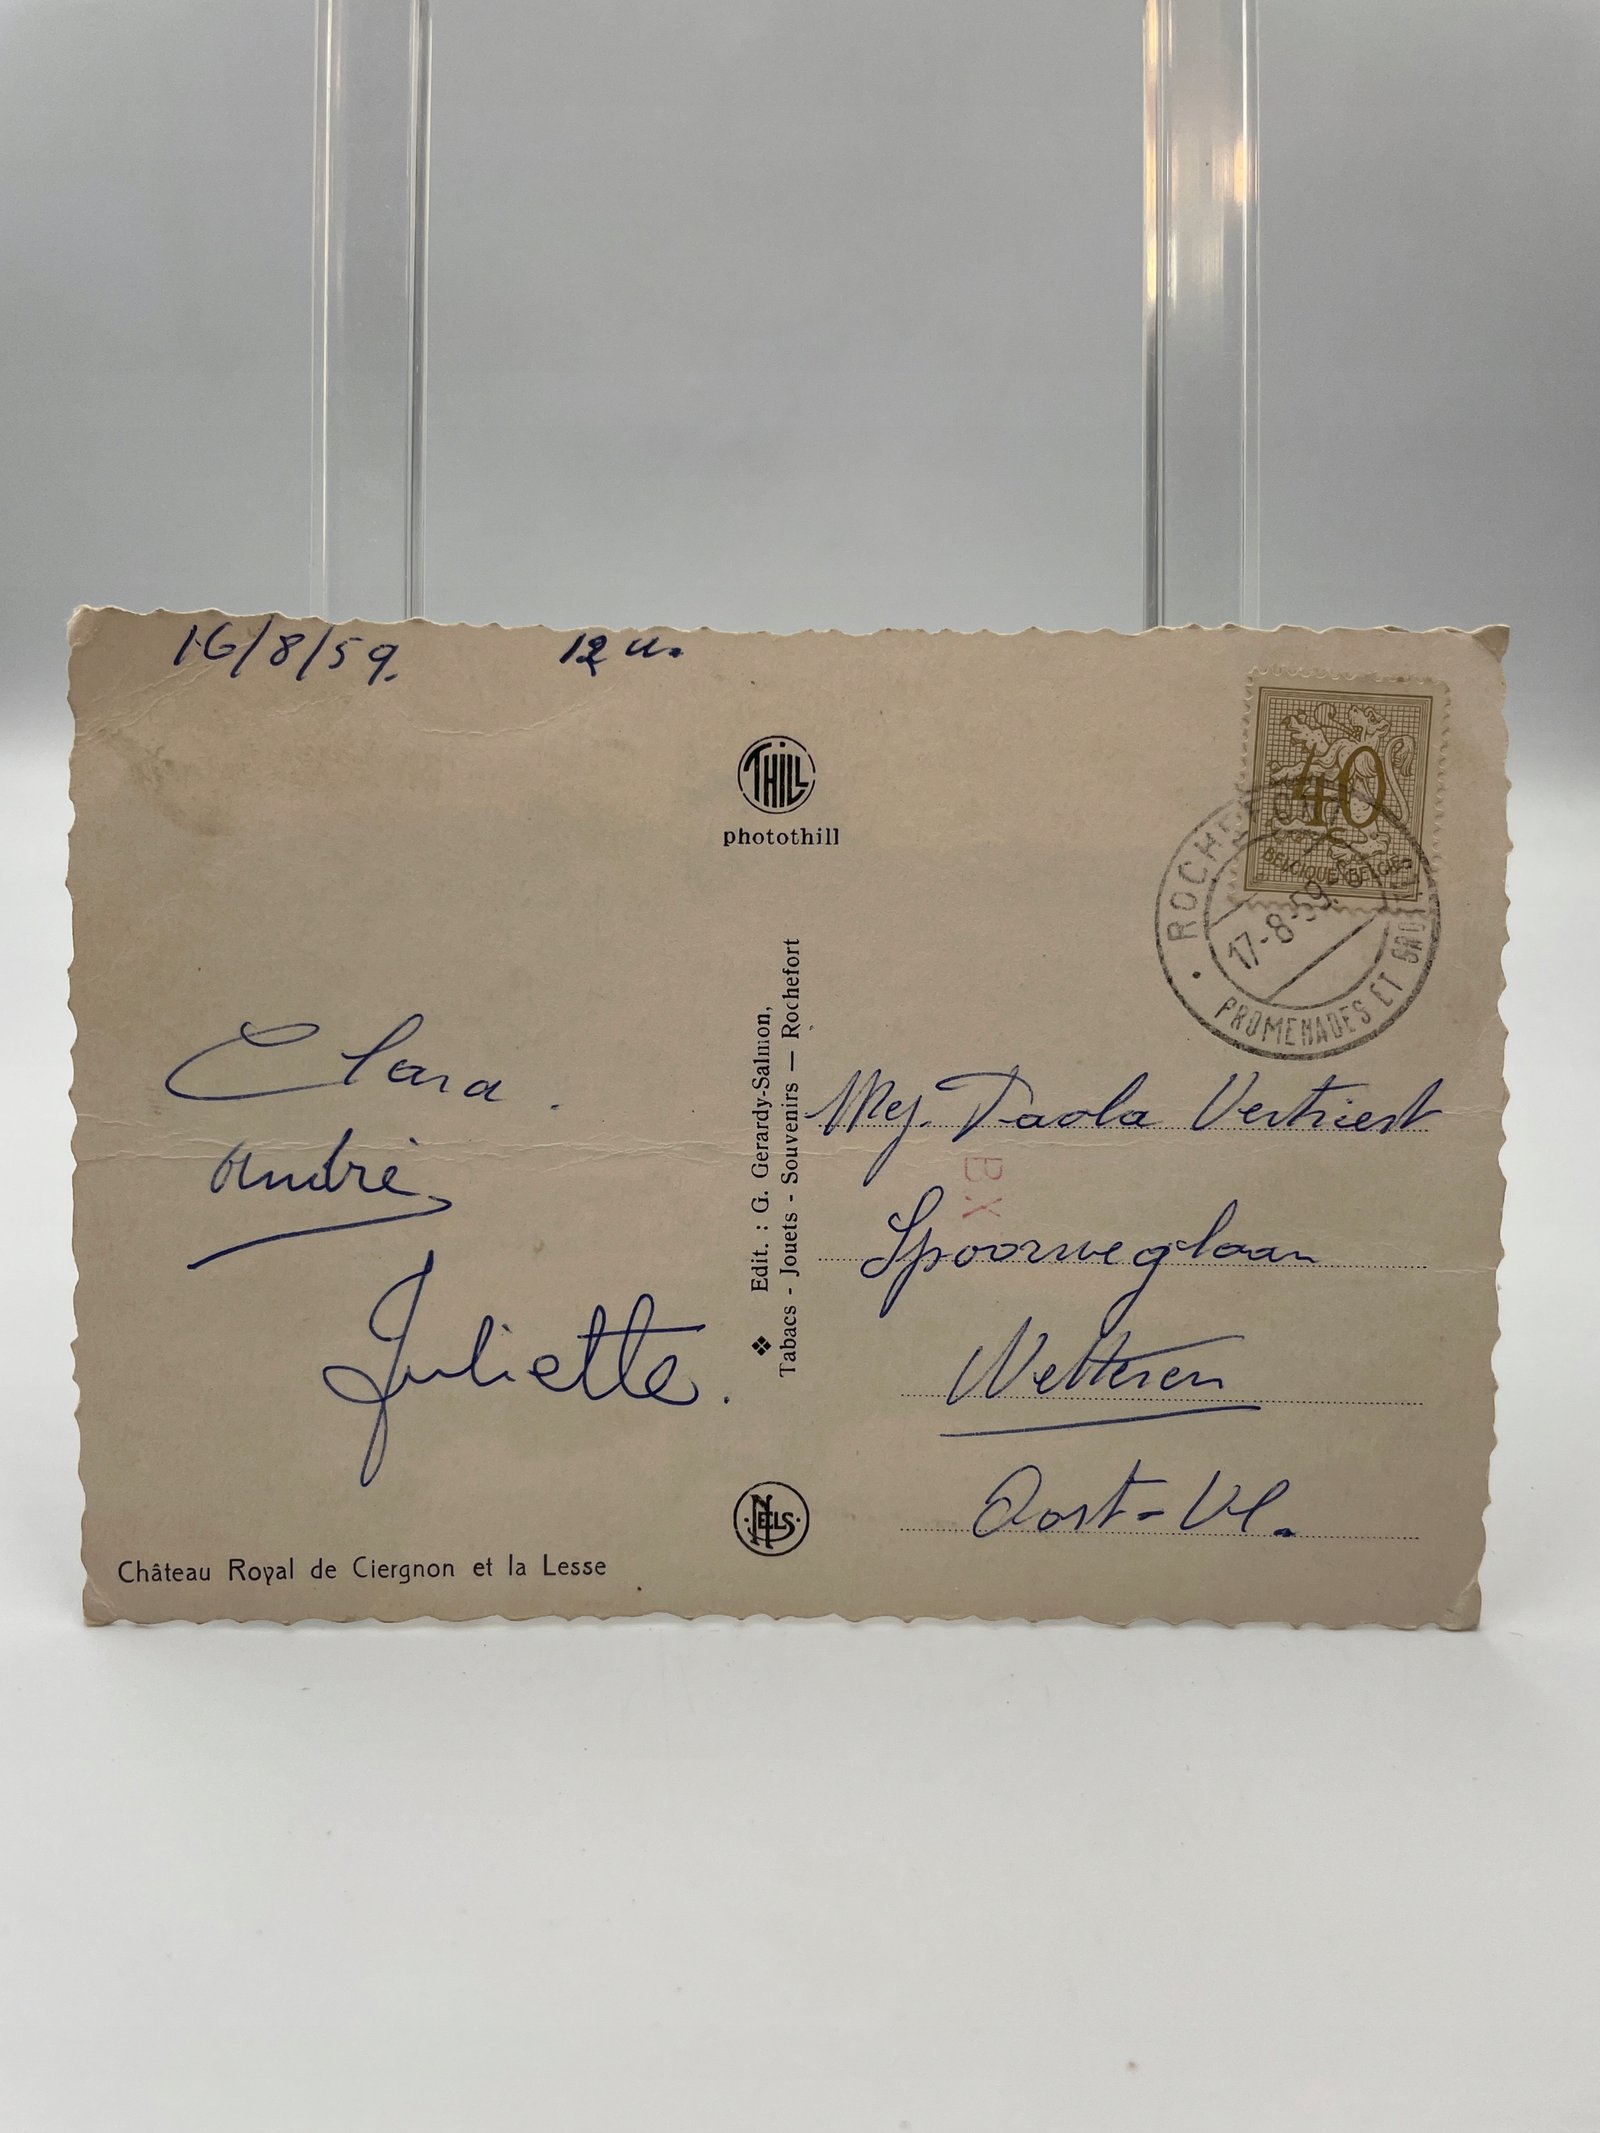 16/8/59. 12 u.
THILL
photothill
40
BELGIQUE-BELGIË
17-8-59
PROMENADES ET
Clara.
André
Juliette.
Edit. : G. Gerardy-Salmon,
Tabacs - Jouets - Souvenirs — Rochefort
Mej. Paola Vertriest
BX
Spoorweglaan
Wetteren
Oost-Vl.
NELS
Château Royal de Ciergnon et la Lesse